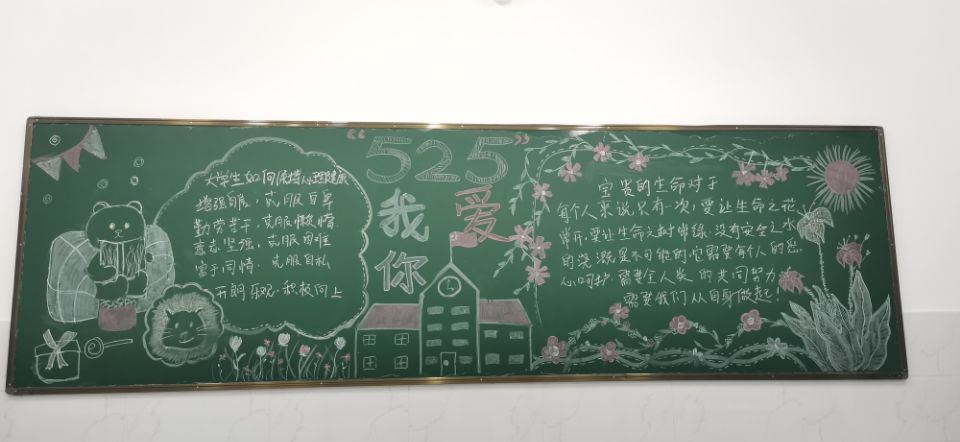 大学生如何保持心理健康
增强自感，克服自卑
勤劳苦干，克服懒惰
意志坚强，克服困难
富于同情，克服自私
开朗乐观，积极向上
“525”
我爱
你
宝贵的生命对于
每个人来说只有一次，要让生命之花
常开，要让生命之树常绿，没有安全之水
的浇灌是不可能的，它需要每个人的悉
心呵护，需要全人类的共同努力
需要我们从自身做起！